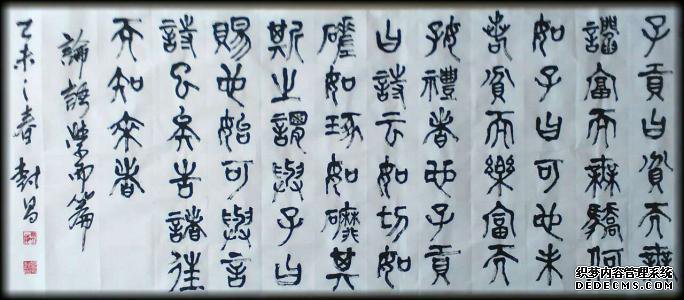 子貢曰貧而無
諂富而無驕何
如子曰可也未
若貧而樂富而
好禮者也子貢
曰詩云如切如
磋如琢如磨其
斯之謂與子曰
賜也始可與言
詩已矣告諸往
而知來者
論語學而篇
乙未之春
织梦内容管理系统
DEDECMS.COM